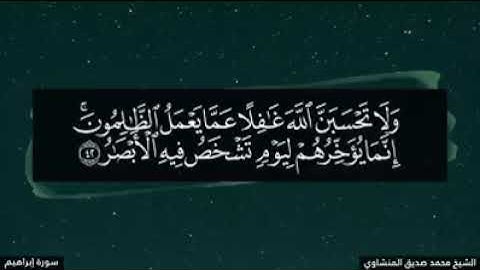 وَلَا تَحْسَبَنَّ ٱللَّهَ غَٰفِلًا عَمَّا يَعْمَلُ ٱلظَّٰلِمُونَۚ
إِنَّمَا يُؤَخِّرُهُمْ لِيَوْمٍ تَشْخَصُ فِيهِ ٱلْأَبْصَٰرُ ٤٢
سورة إبراهيم
الشيخ محمد صديق المنشاوي